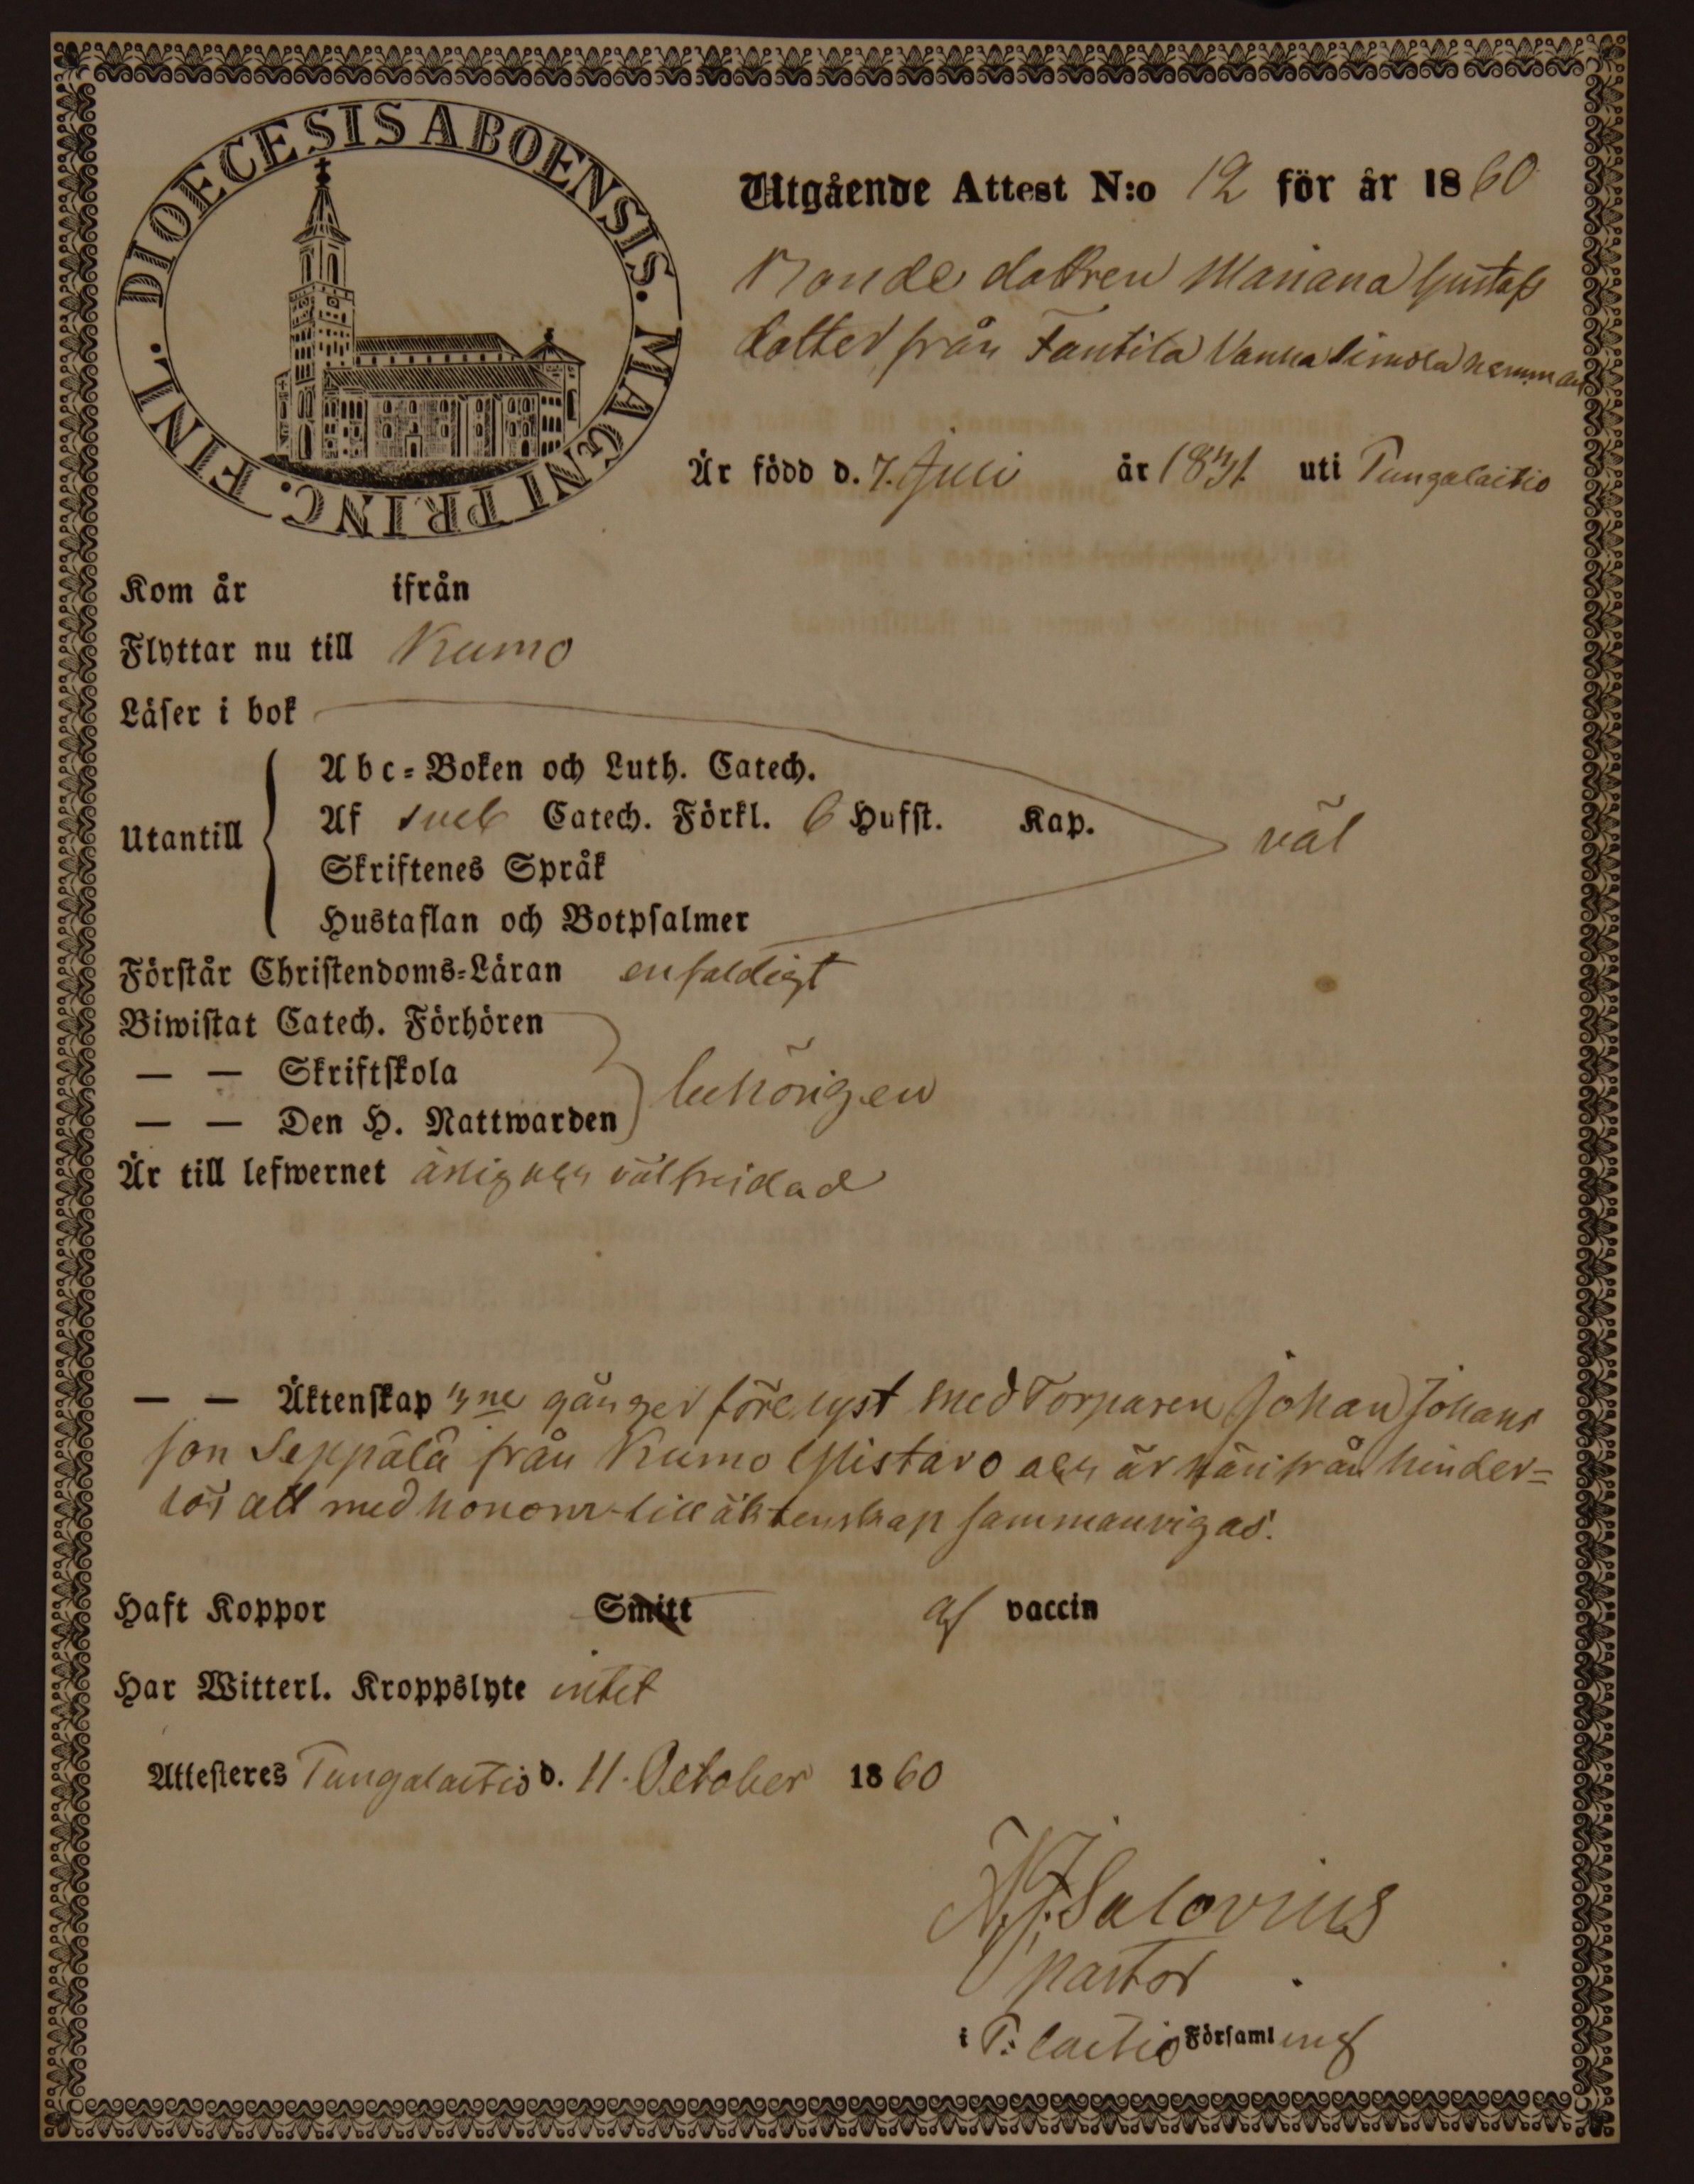 DIOECESIS ABOENSIS. MAGNI PRINC. FINL.
Utgående Attest N:o 12 för år 1860
Bonde dottren Mariana Gustafs
dotter från Fantila Vanhalimola hemman
Är född d. 7. Juli år 1831. uti Pungalaitio
Kom år ifrån
Flyttar nu till Kumo
Läser i bok
Utantill
Abc-Boken och Luth. Catech.
Af sveb Catech. Förkl. 6 Hufst. Kap.
väl
Skriftenes Språk
Hustaflan och Botpsalmer
Förstår Christendoms-Läran enfaldigt
Biwistat Catech. Förhören
— — Skriftskola
behörigen
— — Den H. Nattwarden
Är till lefwernet ärlig och välfrejdad
— — Äktenskap 3ne gånger förelyst med Torparen Johan Johans
son Seppälä från Kumo Ylistaro och är härifrån hinder=
lös att med honom till äktenskap sammanvigas.
Haft Koppor Smitt af vaccin
Har Witterl. Kroppslyte intet
Attesteres Pungalaitio d. 11. October 1860
Salovius
pastor
i P:laitio Församling